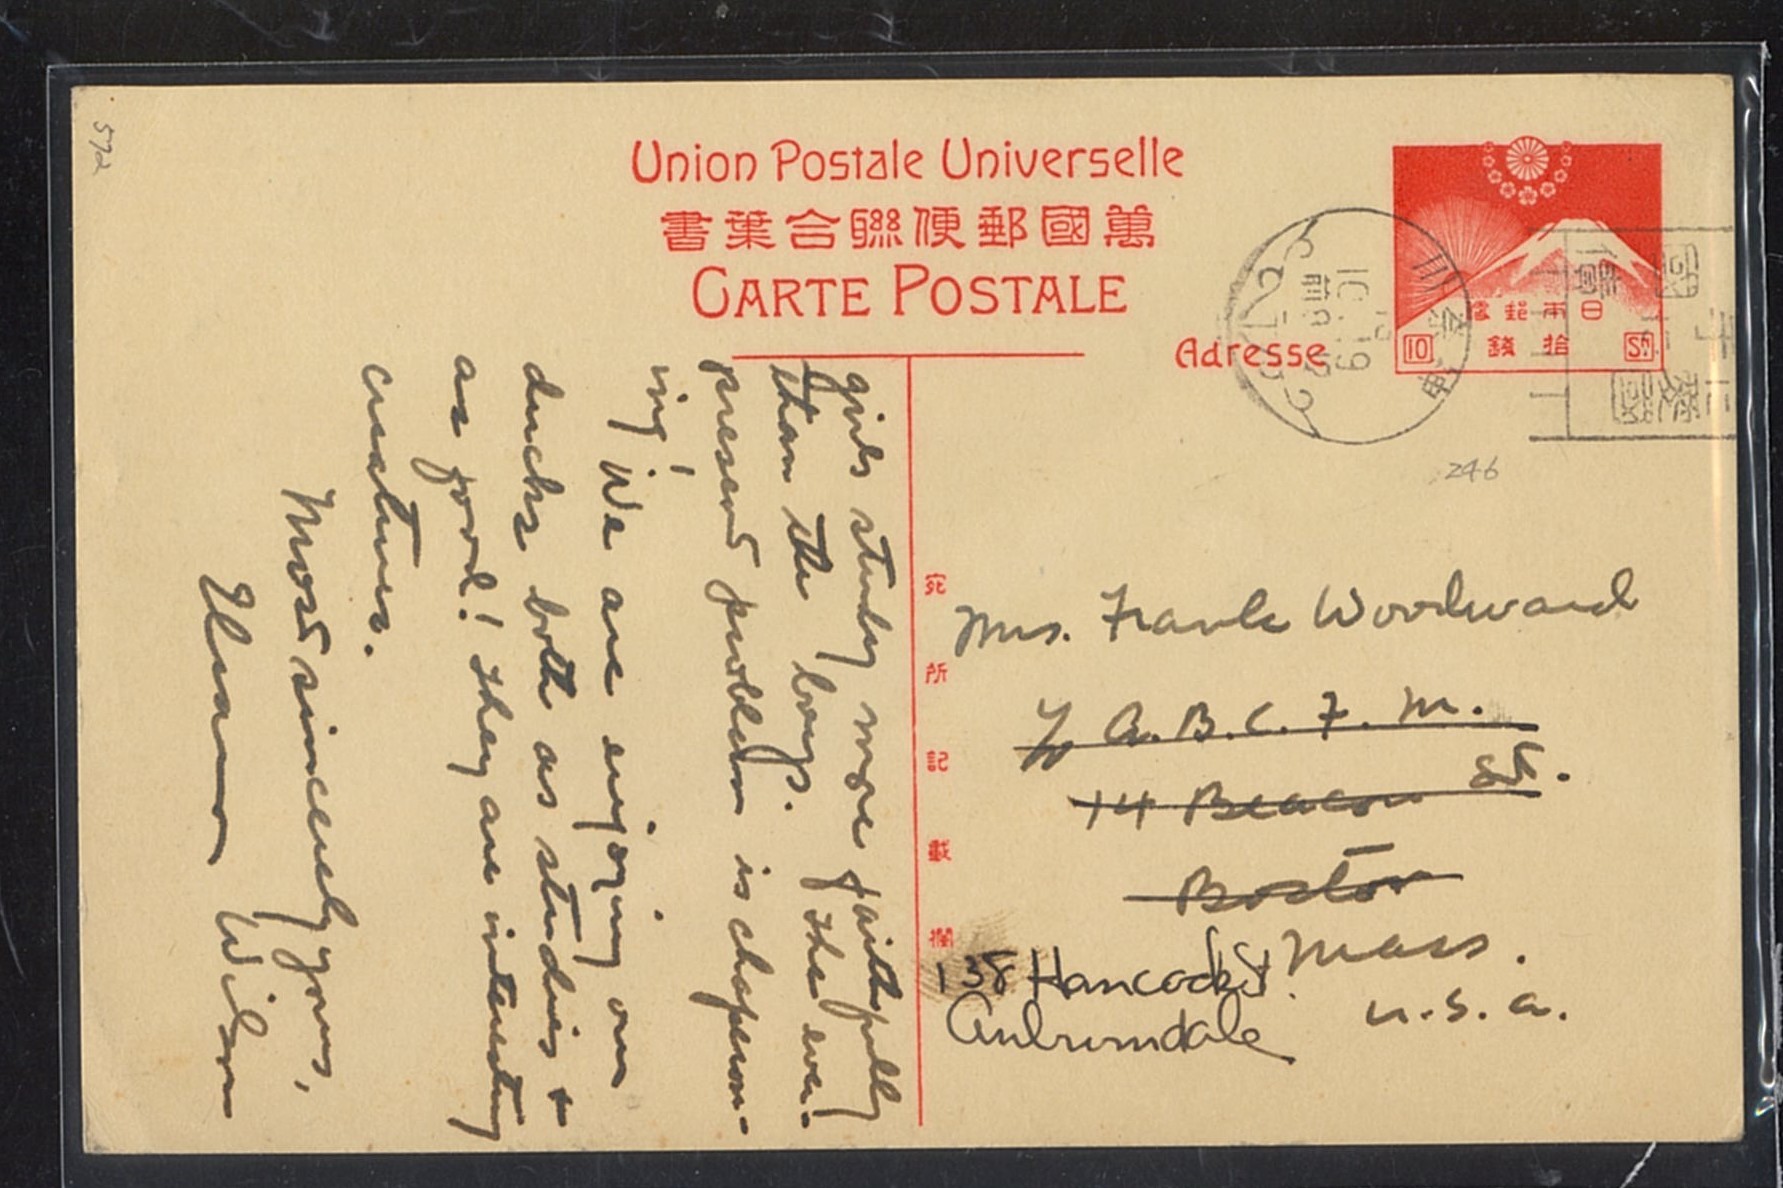 572
Union Postale Universelle
書葉合聯便郵國萬
CARTE POSTALE
Adresse
日本郵便
拾錢
10
Sn
246
宛所記載欄
Mrs. Frank Woodward
℅ A.B.C.F.M.
14 Beacon St.
Boston
Mass.
U.S.A.
138 Hancock St.
Auburndale
girls study more faithfully
than the boys. The ever-
present problem is chaperon-
ing! We are enjoying our
ducks both as studies &
as food! They are interesting
creatures.
Most sincerely yours,
Wilson